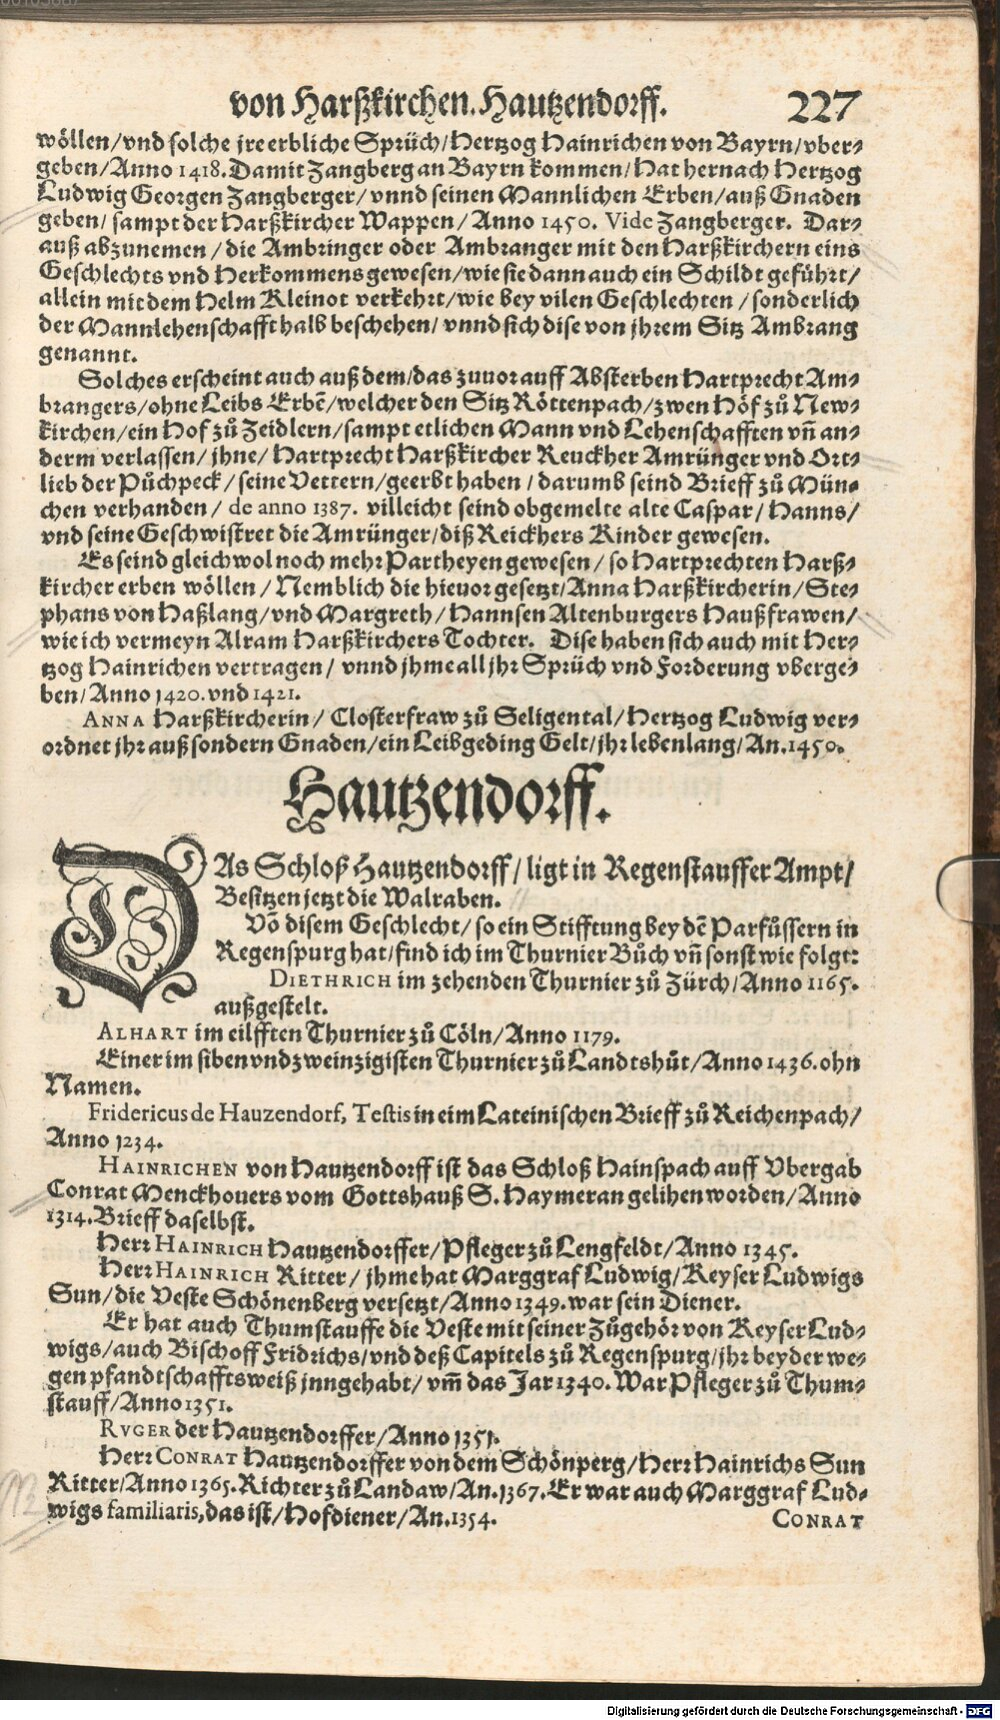 von Harßkirchen. Hautzendorff. 227
wöllen/vnd solche jre erbliche Sprüch/Hertzog Hainrichen von Bayrn/vber-
geben/Anno 1418. Damit Zangberg an Bayrn kommen/Hat hernach Hertzog
Ludwig Georgen Zangberger/vnnd seinen Mannlichen Erben/auß Gnaden
geben/sampt der Harßkircher Wappen/Anno 1450. Vide Zangberger. Dar-
auß abzunemen/die Ambringer oder Ambranger mit den Harßkirchern eins
Geschlechts vnd Herkommens gewesen/wie sie dann auch ein Schildt geführt/
allein mit dem Helm Kleinot verkehrt/wie bey vilen Geschlechten/sonderlich
der Mannlehenschafft halb beschehen/vnnd sich dise von jhrem Sitz Ambrang
genannt.
Solches erscheint auch auß dem/das zuuor auff Absterben Hartprecht Am-
brangers/ohne Leibs Erbē/welcher den Sitz Röttenpach/zwen Höf zů New-
kirchen/ein Hof zů Zeidlern/sampt etlichen Mann vnd Lehenschafften vñ an-
derm verlassen/jhne/Hartprecht Harßkircher Reuckher Amrünger vnd Ort-
lieb der Půchpeck/seine Vettern/geerbt haben/darumb seind Brieff zů Mün-
chen verhanden/de anno 1387. villeicht seind obgemelte alte Caspar/Hanns/
vnd seine Geschwistret die Amrünger/diß Reickhers Kinder gewesen.
Es seind gleichwol noch mehr Partheyen gewesen/so Hartprechten Harß-
kircher erben wöllen/Nemblich die hieuor gesetzt/Anna Harßkircherin/Ste-
phans von Haßlang/vnd Margreth/Hannsen Altenburgers Haußfrawen/
wie ich vermeyn Alram Harßkirchers Tochter. Dise haben sich auch mit Her-
tzog Hainrichen vertragen/vnnd jhme all jhr Sprüch vnd Forderung vberge-
ben/Anno 1420. vnd 1421.
ANNA Harßkircherin/Closterfraw zů Seligental/Hertzog Ludwig ver-
ordnet jhr auß sondern Gnaden/ein Leibgeding Gelt/jhr lebenlang/An. 1450.
Hautzendorff.
DAs Schloß Hautzendorff/ligt in Regenstauffer Ampt/
Besitzen jetzt die Walraben.
Võ disem Geschlecht/so ein Stifftung bey dē Parfüssern in
Regenspurg hat/find ich im Thurnier Bůch vñ sonst wie folgt:
DIETHRICH im zehenden Thurnier zů Zürch/Anno 1165.
außgestelt.
ALHART im eilfften Thurnier zů Cöln/Anno 1179.
Einer im siben vnd zweinzigisten Thurnier zů Landtshůt/Anno 1436. ohn
Namen.
Fridericus de Hauzendorf, Testis in eim Lateinischen Brieff zů Reichenpach/
Anno 1234.
HAINRICHEN von Hautzendorff ist das Schloß Hainspach auff Vbergab
Conrat Menckhouers vom Gottshauß S. Haymeran gelihen worden/Anno
1314. Brieff daselbst.
Herr HAINRICH Hautzendorffer/Pfleger zů Lengfeldt/Anno 1345.
Herr HAINRICH Ritter/jhme hat Marggraf Ludwig/Keyser Ludwigs
Sun/die Veste Schönenberg versetzt/Anno 1349. war sein Diener.
Er hat auch Thumstauffe die Veste mit seiner Zůgehör von Keyser Lud-
wigs/auch Bischoff Fridrichs/vnd deß Capitels zů Regenspurg/jhr beyder we-
gen pfandtschafftsweiß jnngehabt/vm̃ das Jar 1340. War Pfleger zů Thum-
stauff/Anno 1351.
RVGER der Hautzendorffer/Anno 1351.
Herr CONRAT Hautzendorffer von dem Schönperg/Herr Hainrichs Sun
Ritter/Anno 1365. Richter zů Landaw/An. 1367. Er war auch Marggraf Lud-
wigs familiaris, das ist/Hofdiener/An. 1354.
CONRAT
Digitalisierung gefördert durch die Deutsche Forschungsgemeinschaft - DFG